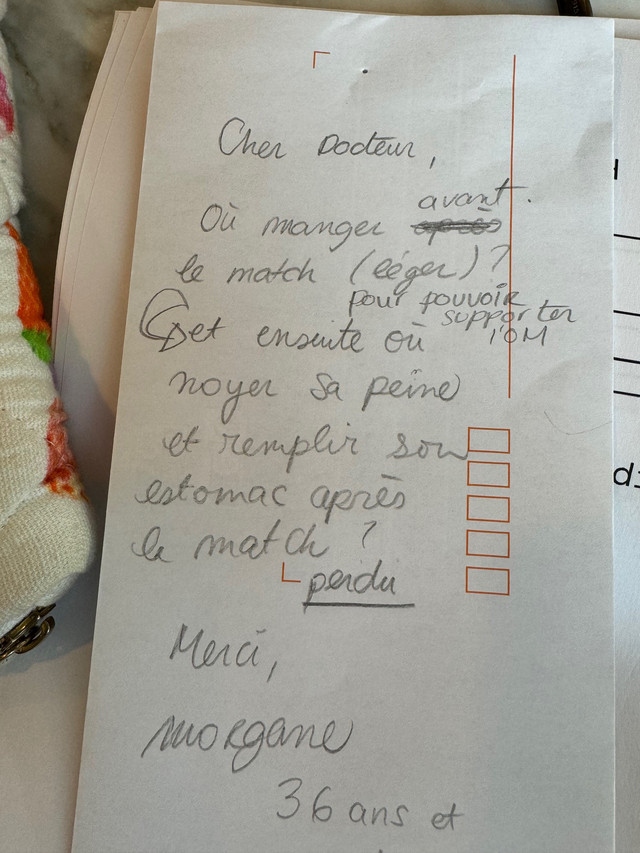 Cher Docteur,
avant.
Où manger après
le match (léger) ?
pour pouvoir
supporter
l'OM
et ensuite où
noyer sa peine
et remplir son
estomac après
le match ?
perdu
Merci,
Morgane
36 ans et